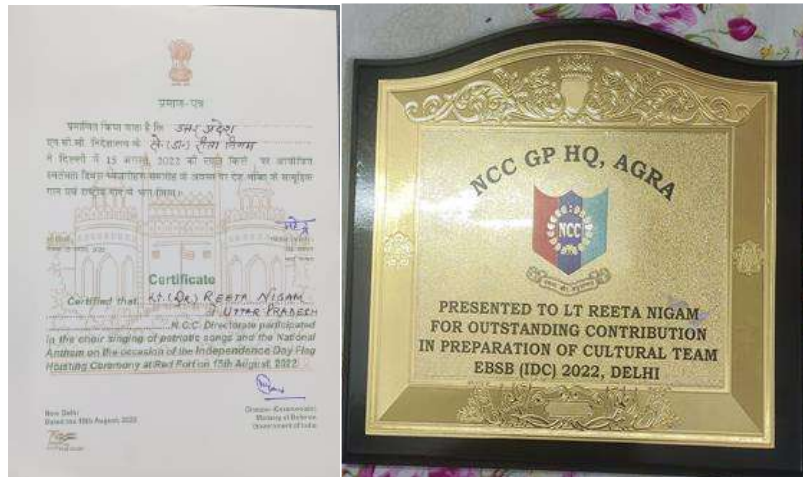 प्रमाण-पत्र
प्रमाणित किया जाता है कि उत्तर प्रदेश
एन.सी.सी. निदेशालय के ले. (डा.) रीता निगम
ने दिल्ली में 15 अगस्त, 2022 को लाल किले पर आयोजित
स्वतंत्रता दिवस ध्वजारोहण समारोह के अवसर पर देश भक्ति के सामूहिक
गान एवं राष्ट्रीय गान में भाग लिया।
Certificate
Certified that Lt. (Dr.) REETA NIGAM
of UTTAR PRADESH
N.C.C. Directorate participated
in the choir singing of patriotic songs and the National
Anthem on the occasion of the Independence Day Flag
Hoisting Ceremony at Red Fort on 15th August, 2022
New Delhi
Dated the 15th August, 2022
Director (Ceremonials)
Ministry of Defence
Government of India
NCC GP HQ, AGRA
NCC
PRESENTED TO LT REETA NIGAM
FOR OUTSTANDING CONTRIBUTION
IN PREPARATION OF CULTURAL TEAM
EBSB (IDC) 2022, DELHI